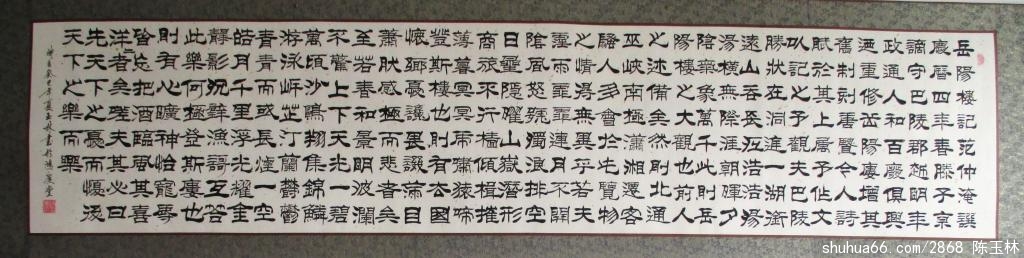 岳陽樓記范仲淹譔
慶曆四年春滕子京
謫守巴陵郡越明年
政通人和百廢俱興
迺重修岳陽樓增其
舊制刻唐賢今人詩
賦於其上屬予作文
以記之予觀夫巴陵
勝狀在洞庭一湖銜
遠山吞長江浩浩湯
湯橫無際涯朝暉夕
陰氣象萬千此則岳
陽樓之大觀也前人
之述備矣然則北通
巫峽南極瀟湘遷客
騷人多會於此覽物
之情得無異乎若夫
霪雨霏霏連月不開
陰風怒號濁浪排空
日星隱耀山嶽潛形
商旅不行檣傾楫摧
薄暮冥冥虎嘯猿啼
登斯樓也則有去國
懷鄉憂讒畏譏滿目
蕭然感極而悲者矣
至若春和景明波瀾
不驚上下天光一碧
萬頃沙鷗翔集錦鱗
游泳岸芷汀蘭鬱鬱
青青而或長煙一空
皓月千里浮光耀金
靜影沉璧漁歌互答
此樂何極登斯樓也
則有心曠神怡寵辱
皆忘把酒臨風其喜
洋洋者矣嗟夫其必曰
先天下之憂而憂後
天下之樂而樂
shuhua66.com/2868 陈玉林